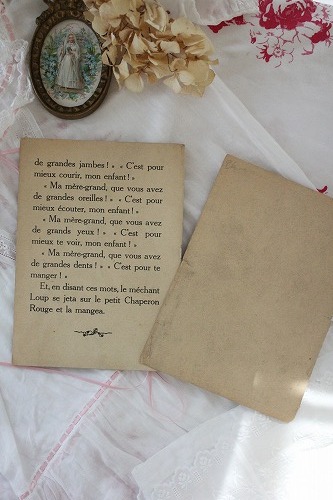 de grandes jambes ! » « C'est pour
mieux courir, mon enfant ! »
« Ma mère-grand, que vous avez
de grandes oreilles ! » « C'est pour
mieux écouter, mon enfant ! »
« Ma mère-grand, que vous avez
de grands yeux ! » « C'est pour
mieux te voir, mon enfant ! »
« Ma mère-grand, que vous avez
de grandes dents ! » « C'est pour te
manger ! »
Et, en disant ces mots, le méchant
Loup se jeta sur le petit Chaperon
Rouge et la mangea.